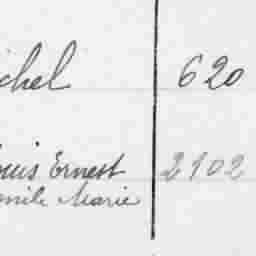 chel 620
ouis Ernest 2102
mile Marie